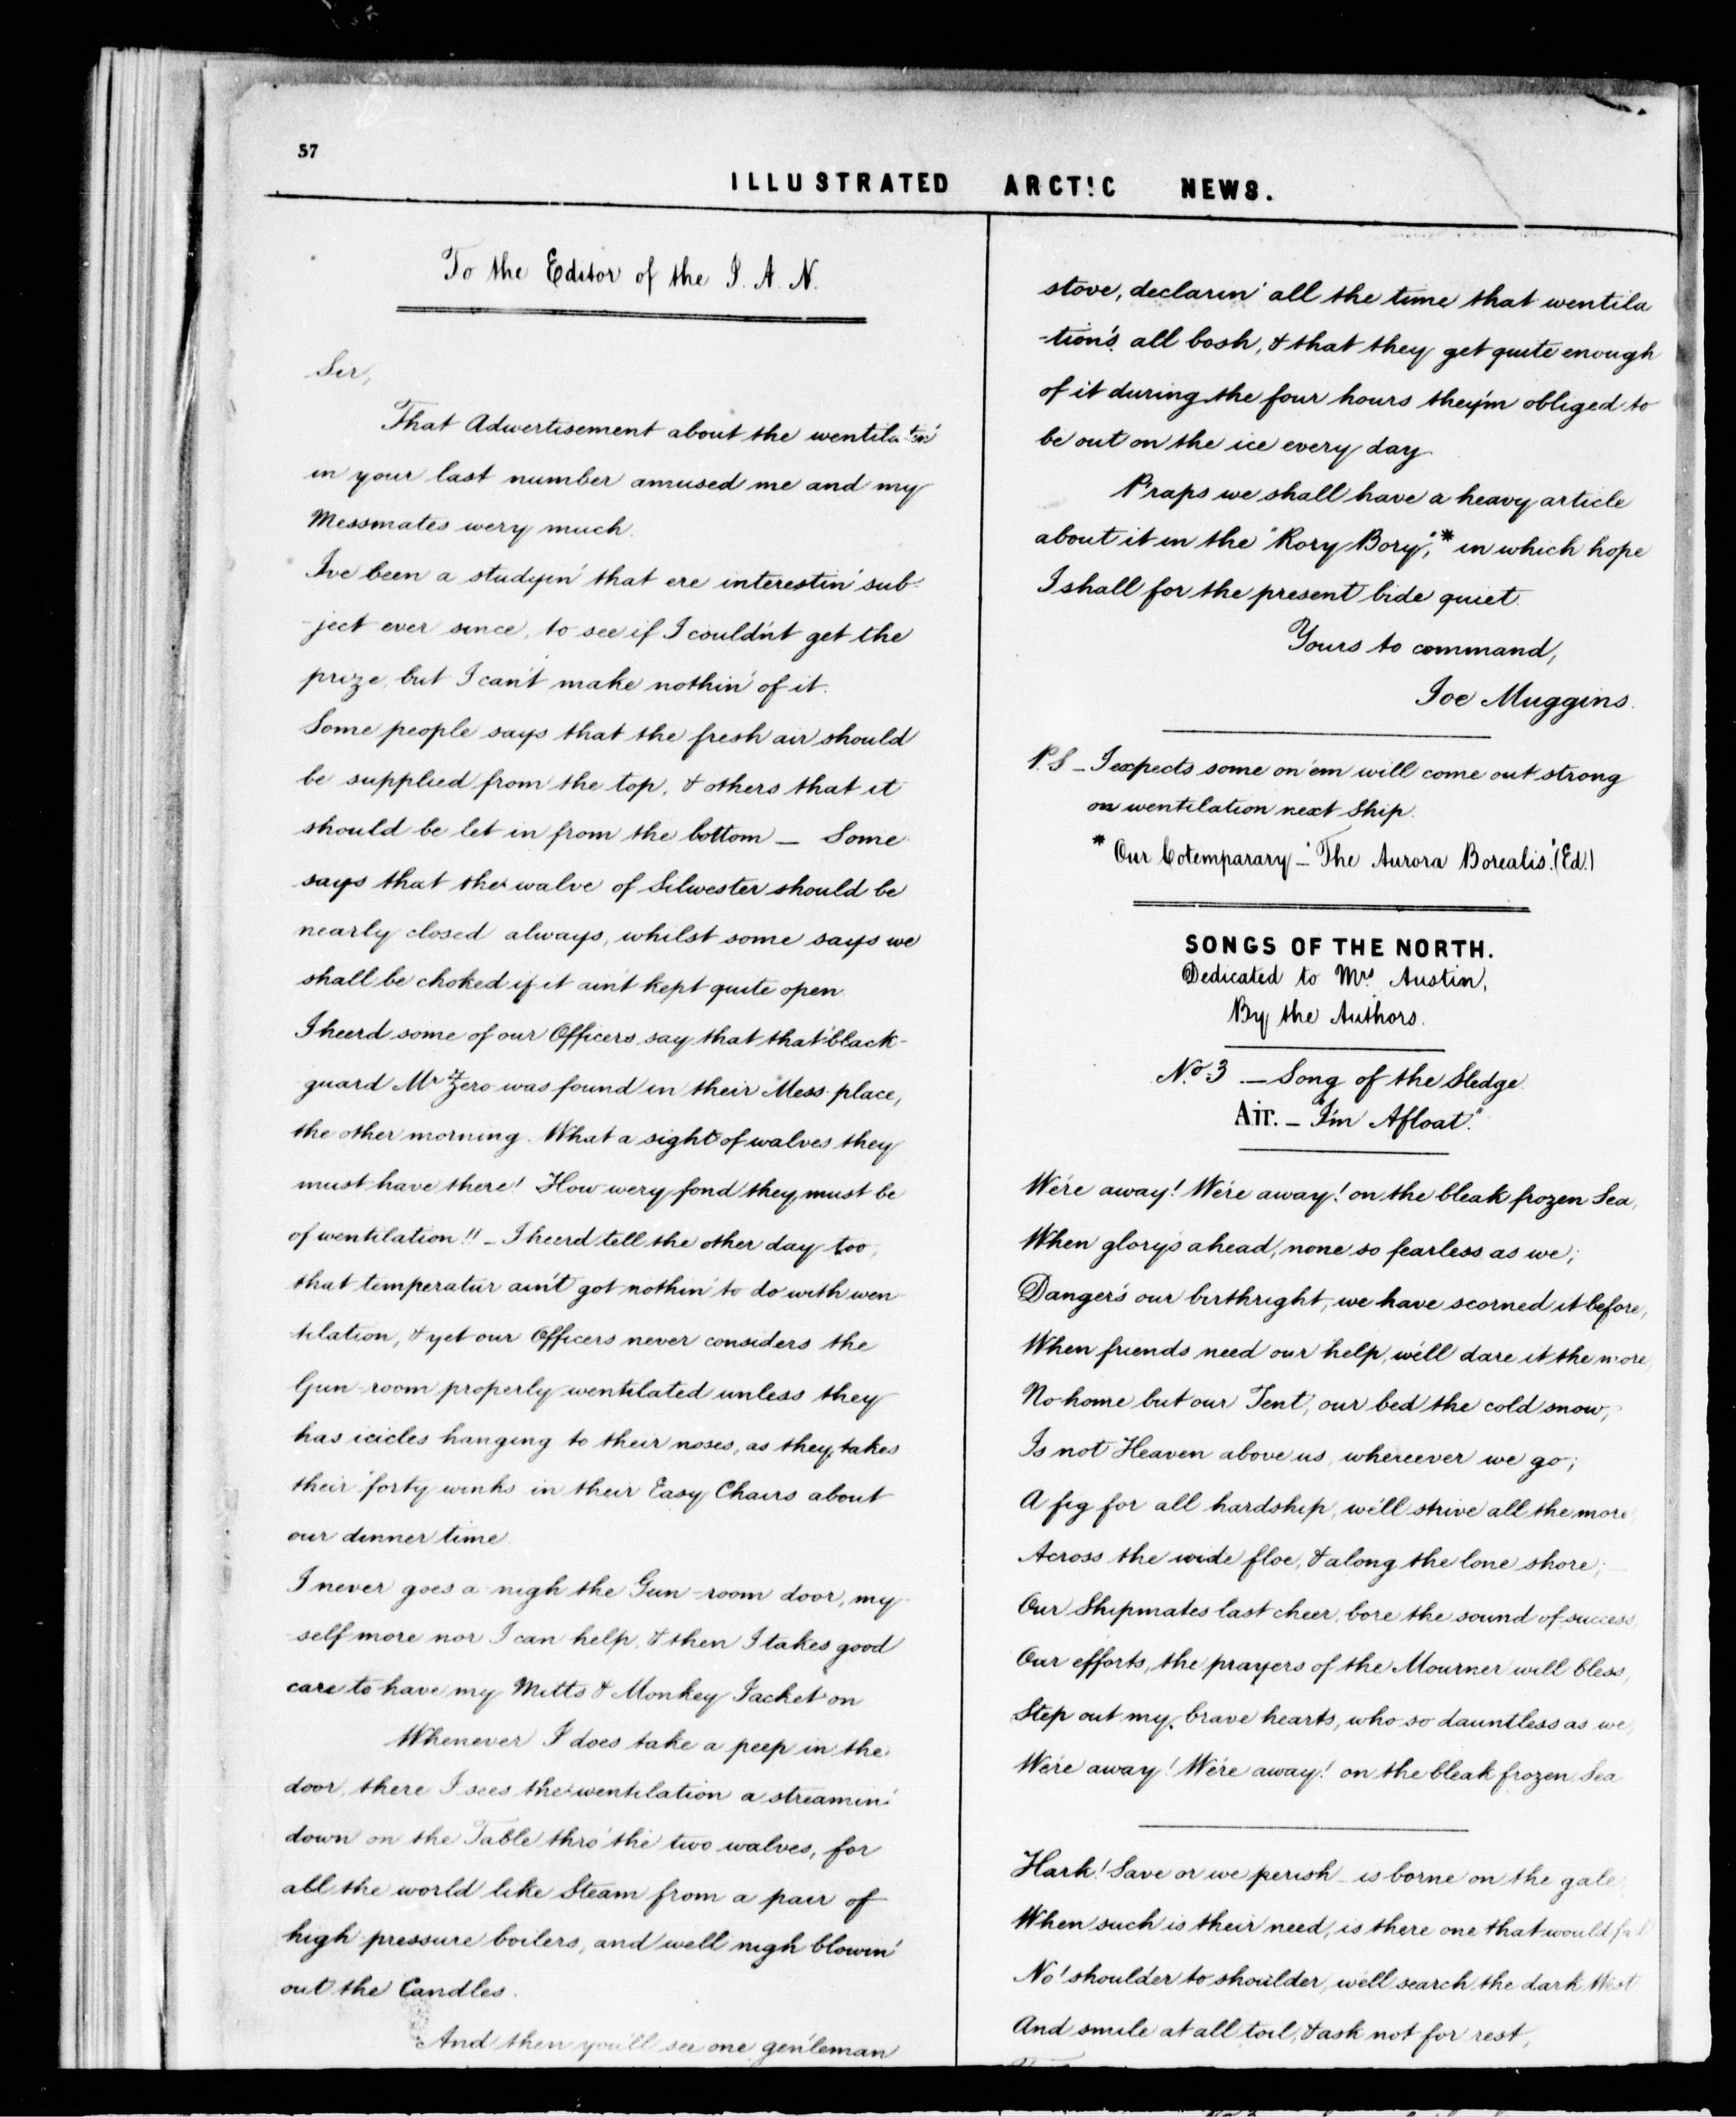 57
ILLUSTRATED ARCTIC NEWS.
To the Editor of the I. A. N.
Sir,
That Adwertisement about the wentilatin'
in your last number amused me and my
Messmates wery much.
I've been a studyin' that ere interestin' sub-
-ject ever since, to see if I could'nt get the
prize, but I can't make nothin' of it.
Some people says that the fresh air should
be supplied from the top, & others that it
should be let in from the bottom — Some
says that the walve of Silwester should be
nearly closed always, whilst some says we
shall be choked if it ain't kept quite open.
I heerd some of our Officers say that that black-
guard Mr Zero was found in their Mess-place,
the other morning. What a sight of walves they
must have there! How wery fond they must be
of wentilation!! — I heerd tell the other day too,
that temperatur ain't got nothin' to do with wen-
tilation, & yet our Officers never considers the
Gun-room properly wentilated unless they
has icicles hanging to their noses, as they takes
their forty winks in their Easy Chairs about
our dinner time.
I never goes a nigh the Gun-room door, my-
-self more nor I can help, & then I takes good
care to have my Mitts & Monkey Jacket on
Whenever I does take a peep in the
door, there I sees the wentilation a streamin'
down on the Table thro' the two walves, for
all the world like Steam from a pair of
high pressure boilers, and well nigh blowin'
out the Candles.
And then you'll see one gen'leman
stove, declarin' all the time that wentila
-tion's all bosh, & that they get quite enough
of it during the four hours they'm obliged to
be out on the ice every day.
P'raps we shall have a heavy article
about it in the "Rory Bory",* in which hope
I shall for the present bide quiet.
Yours to command,
Joe Muggins.
P.S — I expects some on 'em will come out strong
on wentilation next Ship.
* Our Cotemparary — 'The Aurora Borealis.' (Ed.)
SONGS OF THE NORTH.
Dedicated to Mrs Austin,
By the Authors.
No. 3 — Song of the Sledge.
Air. — "I'm Afloat."
We're away! We're away! on the bleak frozen Sea,
When glory's ahead, none so fearless as we;
Danger's our birthright, we have scorned it before,
When friends need our help, we'll dare it the more,
No home but our Tent, our bed the cold snow,
Is not Heaven above us, whereever we go;
A fig for all hardship, we'll strive all the more
Across the wide floe, & along the lone shore; —
Our Shipmates last cheer, bore the sound of success,
Our efforts, the prayers of the Mourner will bless,
Step out my brave hearts, who so dauntless as we,
We're away! We're away! on the bleak frozen Sea
Hark! Save or we perish — is borne on the gale
When such is their need, is there one that would
No! shoulder to shoulder, we'll search the dark West
And smile at all toil, & ask not for rest,